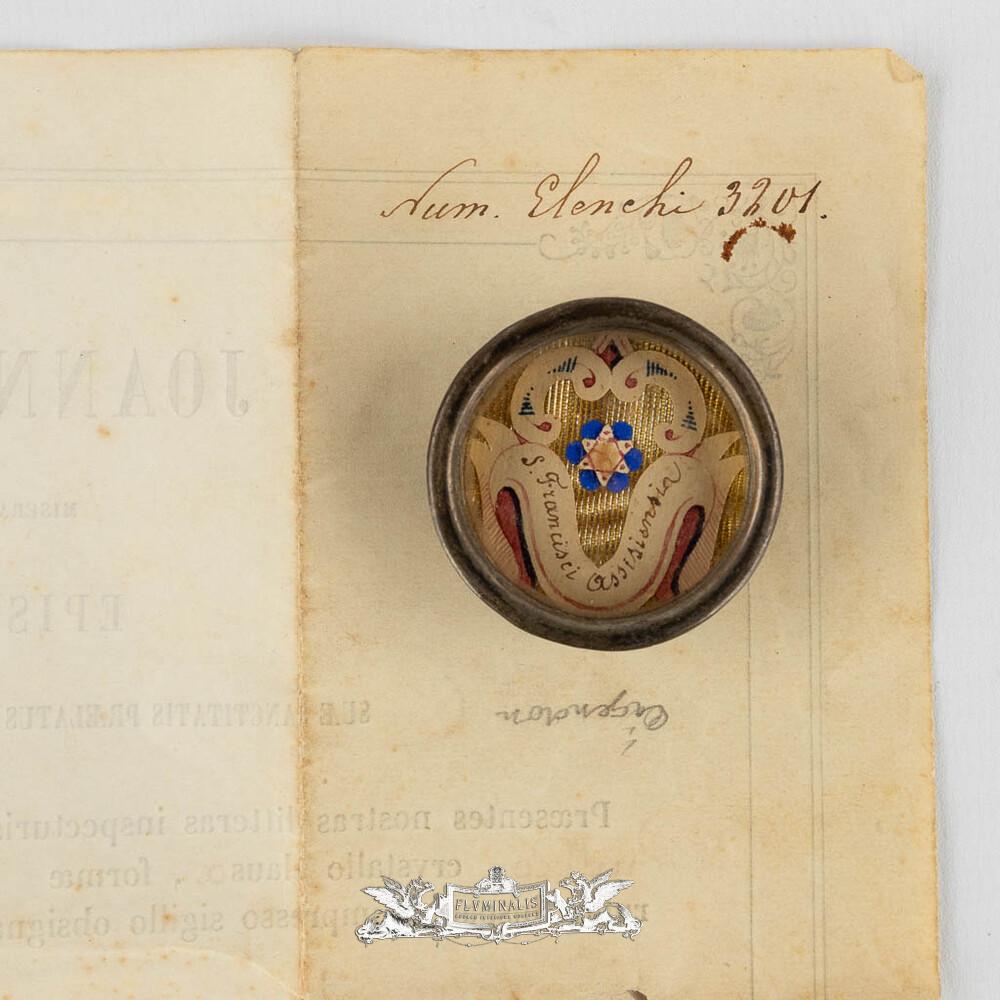 Num. Elenchi 3201.
S. Francisci Assisiensis
JOANN
EPIS
SUÆ SANCTITATIS PRÆLATUS
Præsentes nostras litteras inspecturis
crystallo clauso, formæ
impresso sigillo obsigna
FLVMINALIS